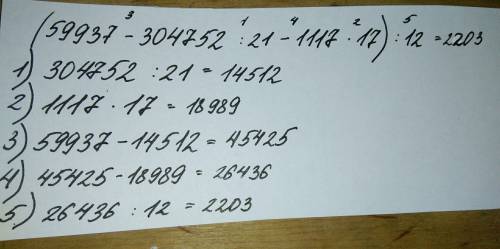 3 1 4 2 5
(59937 - 304752 : 21 - 1117 · 17) : 12 = 2203
1) 304752 : 21 = 14512
2) 1117 · 17 = 18989
3) 59937 - 14512 = 45425
4) 45425 - 18989 = 26436
5) 26436 : 12 = 2203